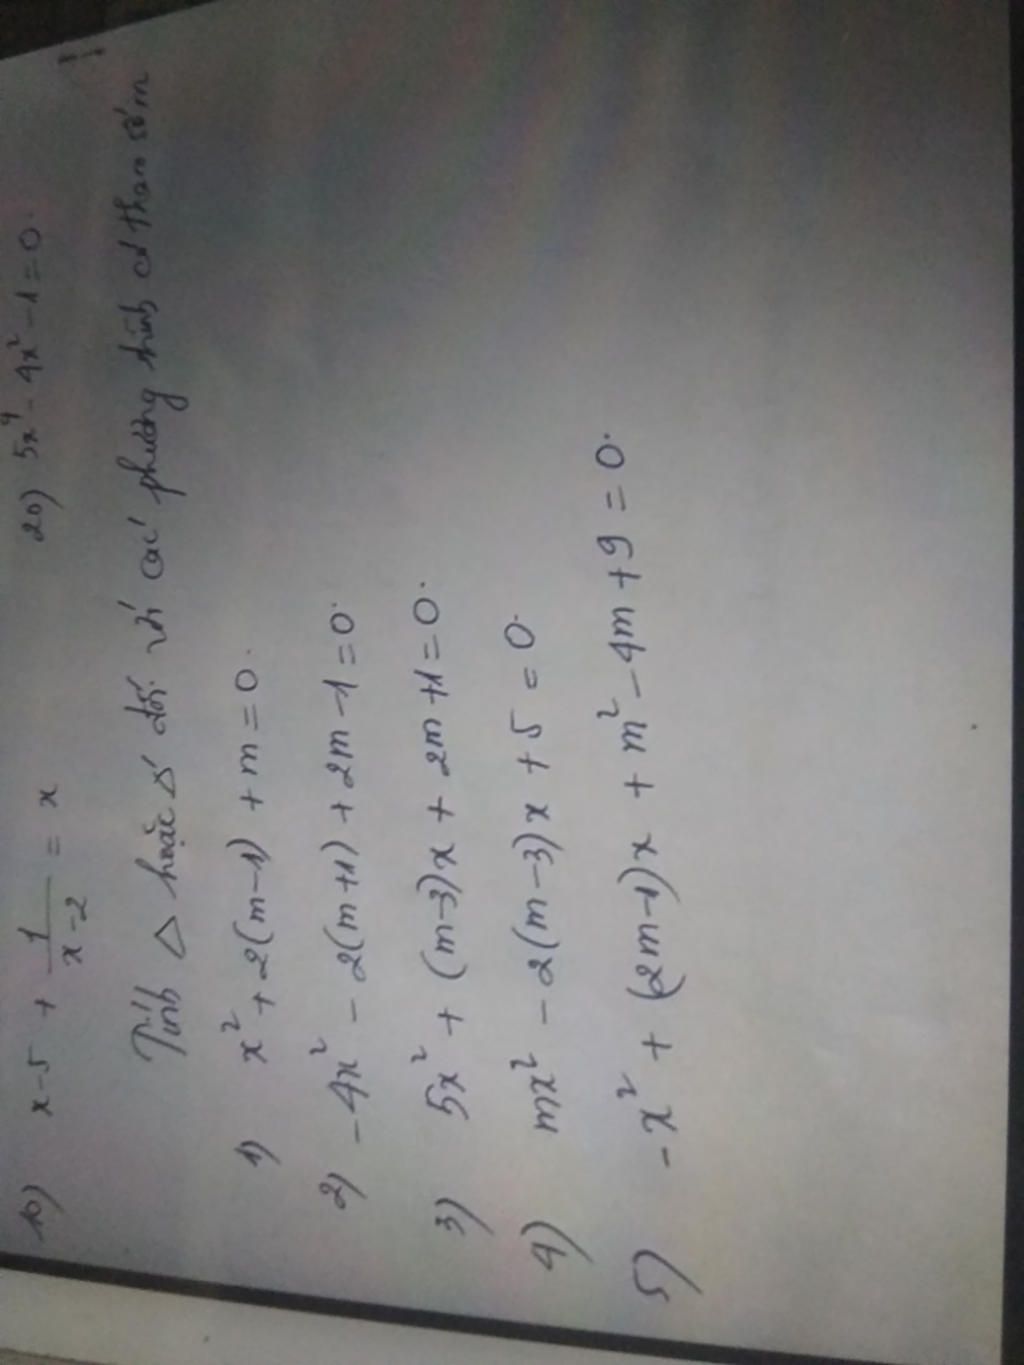 10) x-5 + \frac{1}{x-2} = x 20) 5x⁴ - 4x² - 1 = 0.
Tính Δ hoặc Δ' đối với các phương trình có tham số m
1) x² + 2(m-1) + m = 0.
2) -4x² - 2(m+1) + 2m - 1 = 0.
3) 5x² + (m-3)x + 2m + 1 = 0.
4) mx² - 2(m-3)x + 5 = 0.
5) -x² + (2m-1)x + m² - 4m + 9 = 0.